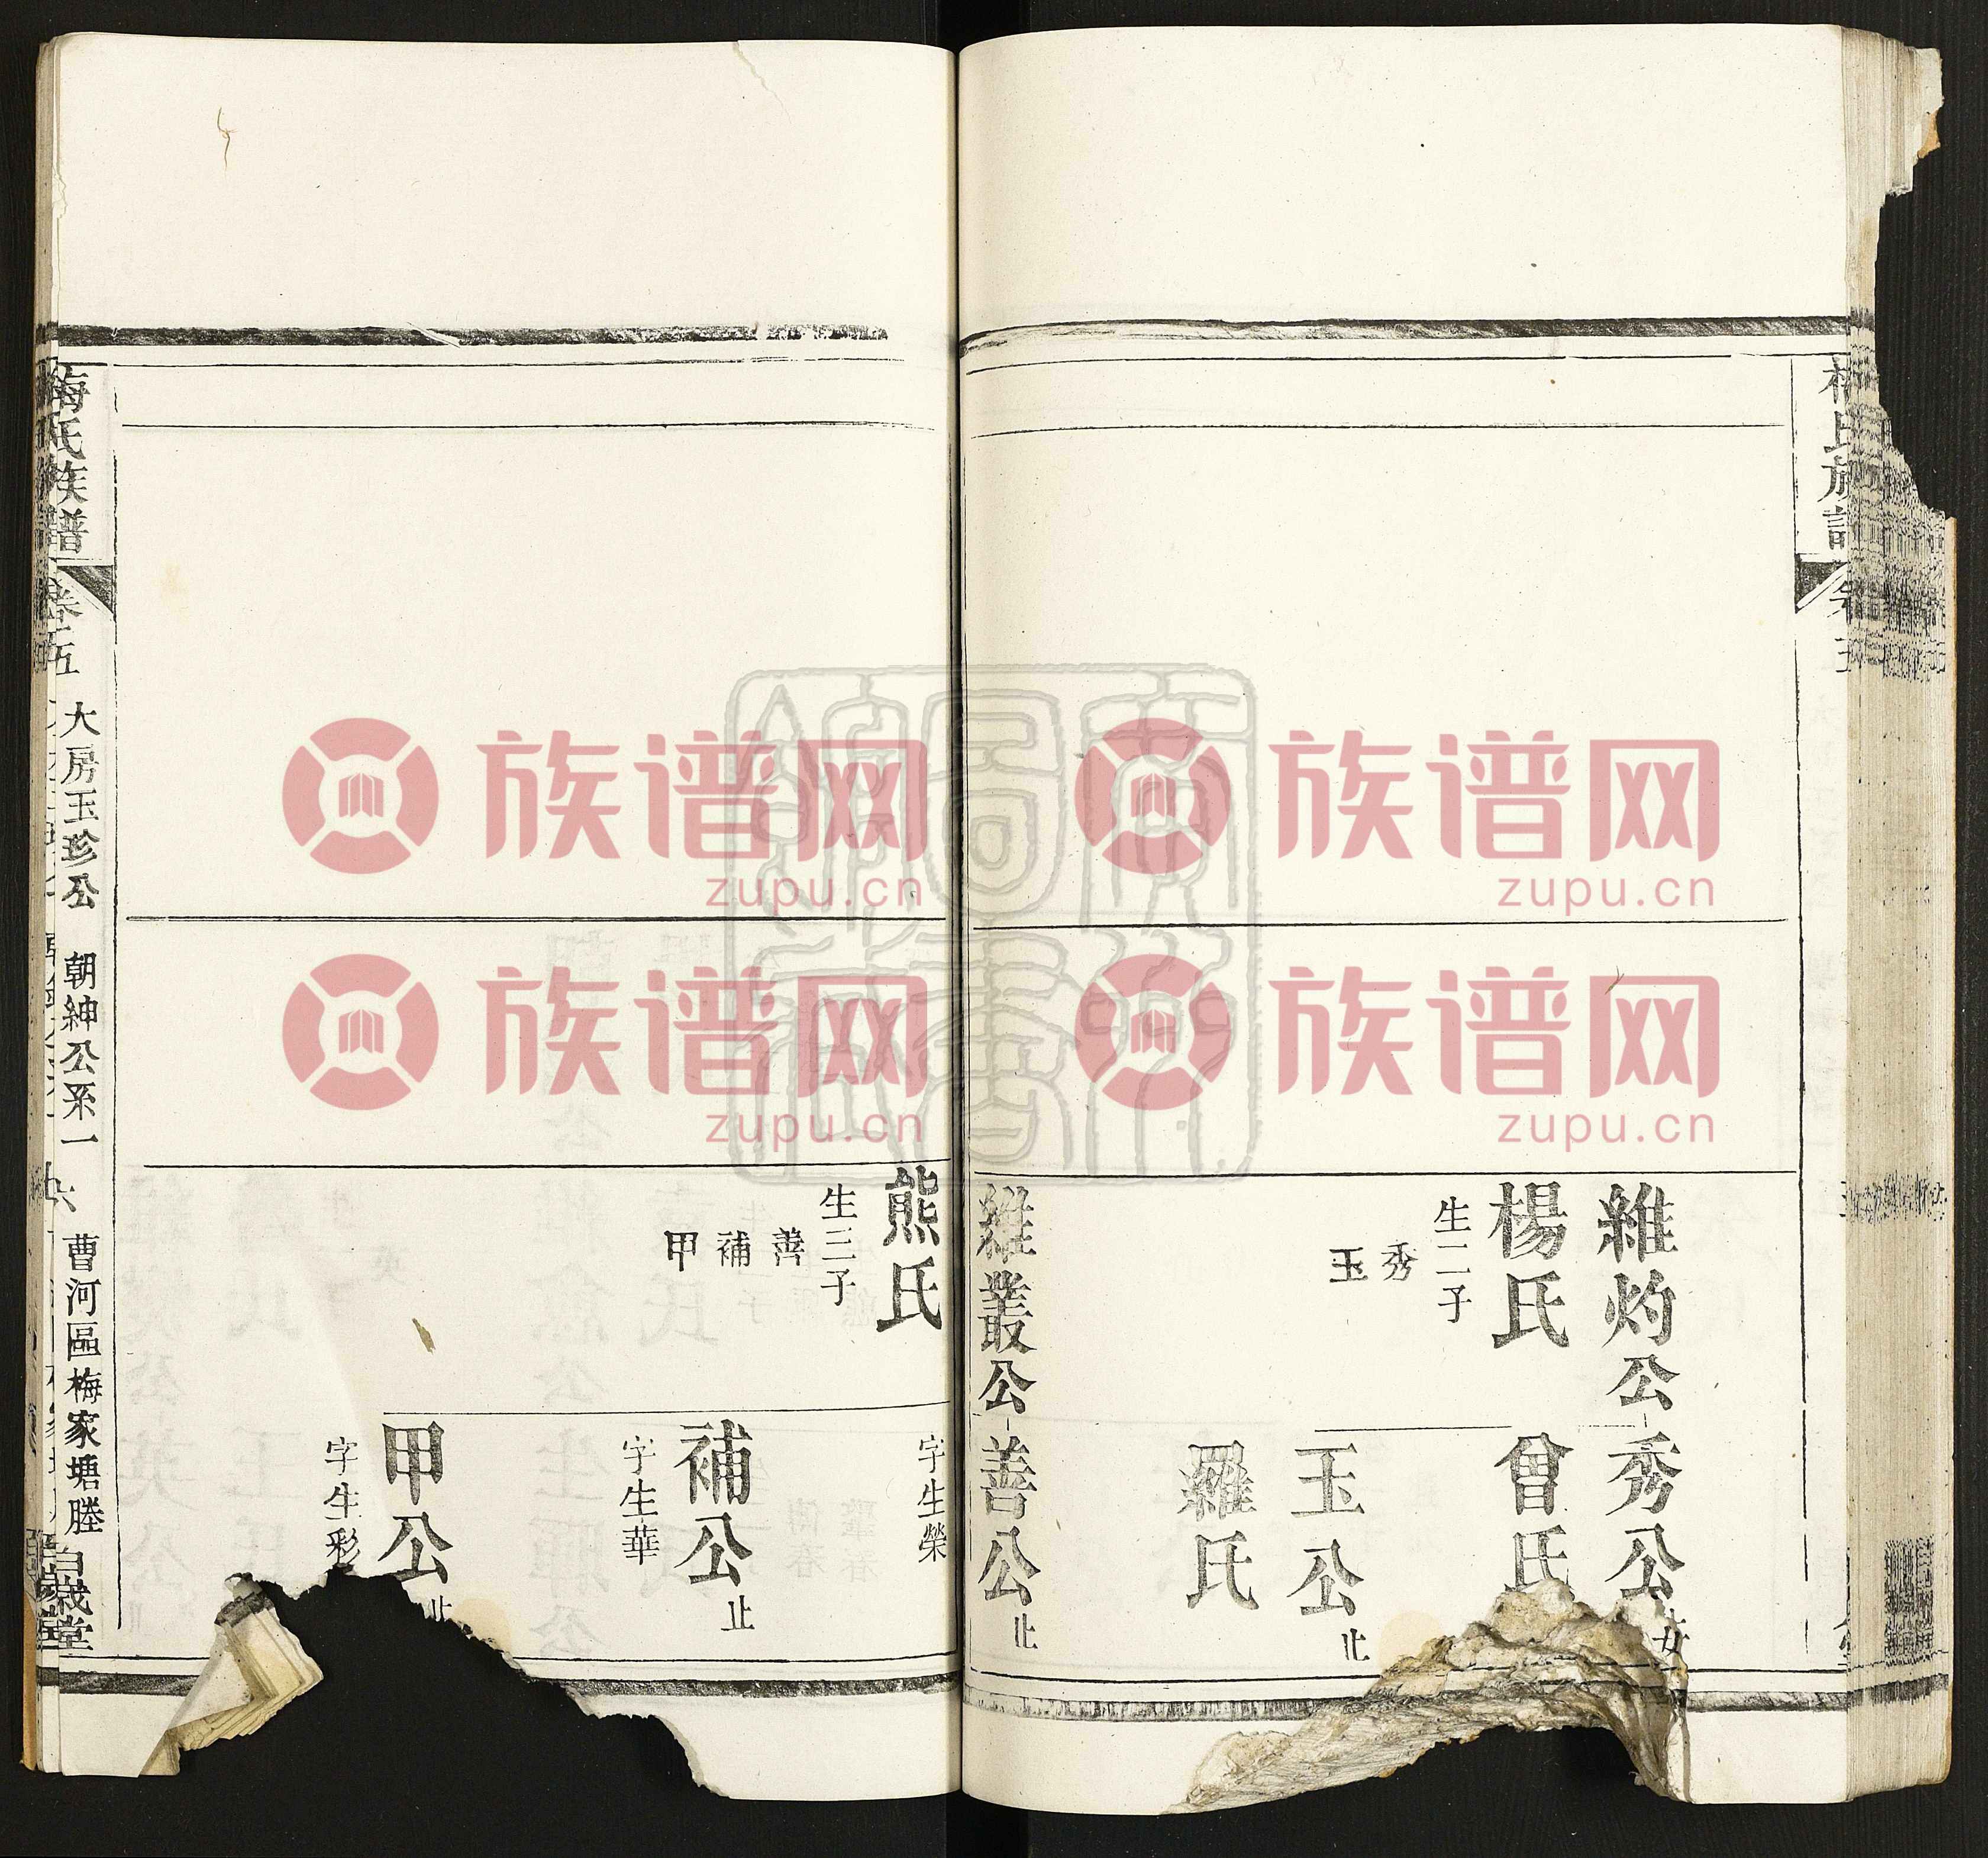 維灼公
楊氏
生二子
秀
玉
維叢公
秀公
曾氏
玉公
止
羅氏
善公
止
熊氏
生三子
善
補
甲
字生榮
補公
止
字生華
甲公
止
字生彩
梅氏族譜
卷五
大房玉珍公
朝紳公系一
六
曹河區梅家塘塍
族谱网
zupu.cn
族谱网
zupu.cn
族谱网
zupu.cn
族谱网
zupu.cn